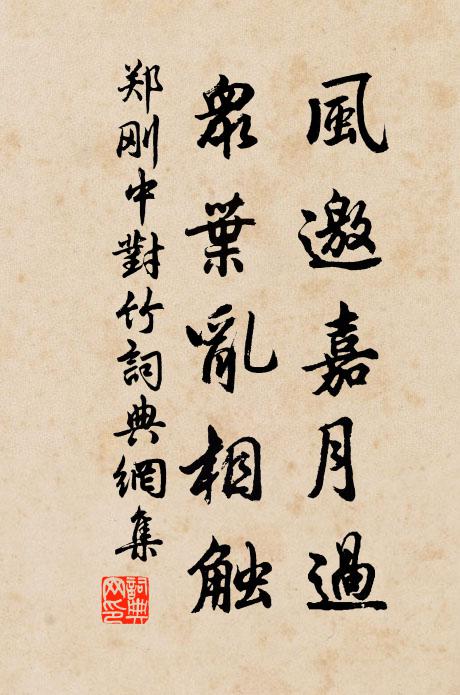 風邀嘉月過
眾葉亂相触
郑刚中對竹詞典網集
詞典
网印